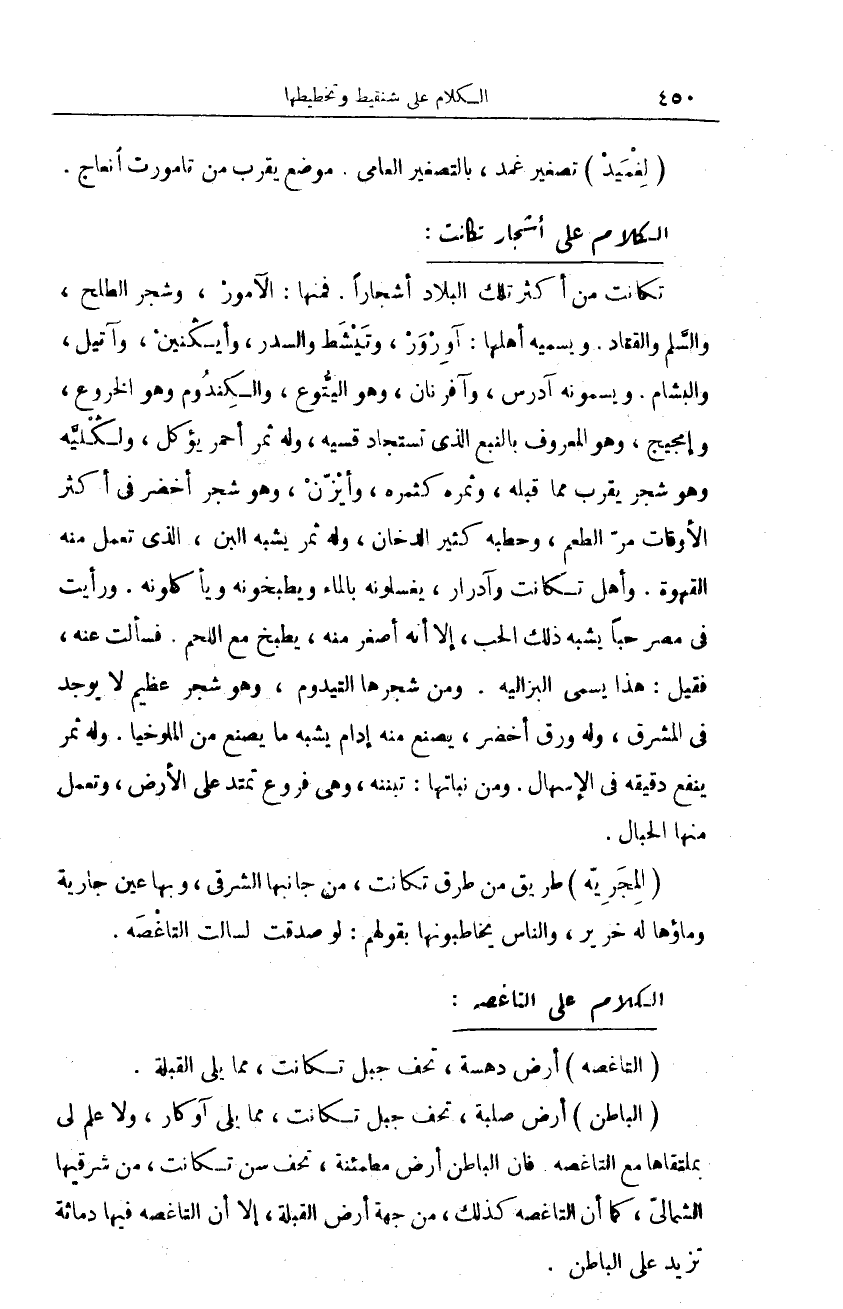 ٤٥٠ الكلام على شنقيط وتخطيطها
( لِغْمَيدْ ) تصغير غمد ، بالتصغير العامى . موضع يقرب من تامورت أنعاج .
الكلام على أشجار تكانت :
تكانت من أكثر تلك البلاد أشجاراً . فمنها : الآمورْ ، وشجر الطلح ،
والسَّلم والقتاد . ويسميه أهلها : آوِرْوَرْ ، وتَيْشَط والسدر ، وأيكْنينْ ، وآتيل ،
والبشام . ويسمونه آدرس ، وآفرنان ، وهو اليتُّوع ، والكِندُوم وهو الخروع ،
وإمجيج ، وهو المعروف بالنبع الذى تستجاد قسيه ، وله ثمر أحمر يؤكل ، ولكْلَيَّه
وهو شجر يقرب مما قبله ، وثمره كثمره ، وأيْزّنْ ، وهو شجر أخضر فى أكثر
الأوقات مرّ الطعم ، وحطبه كثير الدخان ، وله ثمر يشبه البن ، الذى تعمل منه
القهوة . وأهل تكانت وآدرار ، يغسلونه بالماء ويطبخونه ويأكلونه . ورأيت
فى مصر حباً يشبه ذلك الحب ، إلا أنه أصغر منه ، يطبخ مع اللحم . فسألت عنه ،
فقيل : هذا يسمى البزاليه . ومن شجرها التيدوم ، وهو شجر عظيم لا يوجد
فى المشرق ، وله ورق أخضر ، يصنع منه إدام يشبه ما يصنع من الملوخيا . وله ثمر
ينفع دقيقه فى الإسهال . ومن نباتها : تبننه ، وهى فروع تمتد على الأرض ، وتعمل
منها الحبال .
( المِجَرِيّه ) طريق من طرق تكانت ، من جانبها الشرقى ، وبها عين جارية
وماؤها له خرير ، والناس يخاطبونها بقولهم : لو صدقت لسالت التاغْصَه .
الكلام على التاغصه :
( التاغصه ) أرض دهسة ، تحف جبل تكانت ، مما يلى القبلة .
( الباطن ) أرض صلبة ، تحف جبل تكانت ، مما يلى آوكار ، ولا علم لى
بملتقاها مع التاغصه . فان الباطن أرض مطمئنة ، تحف سن تكانت ، من شرقيها
الشمالىّ ، كما أن التاغصه كذلك ، من جهة أرض القبلة ، إلا أن التاغصه فيها دماثة
تزيد على الباطن .